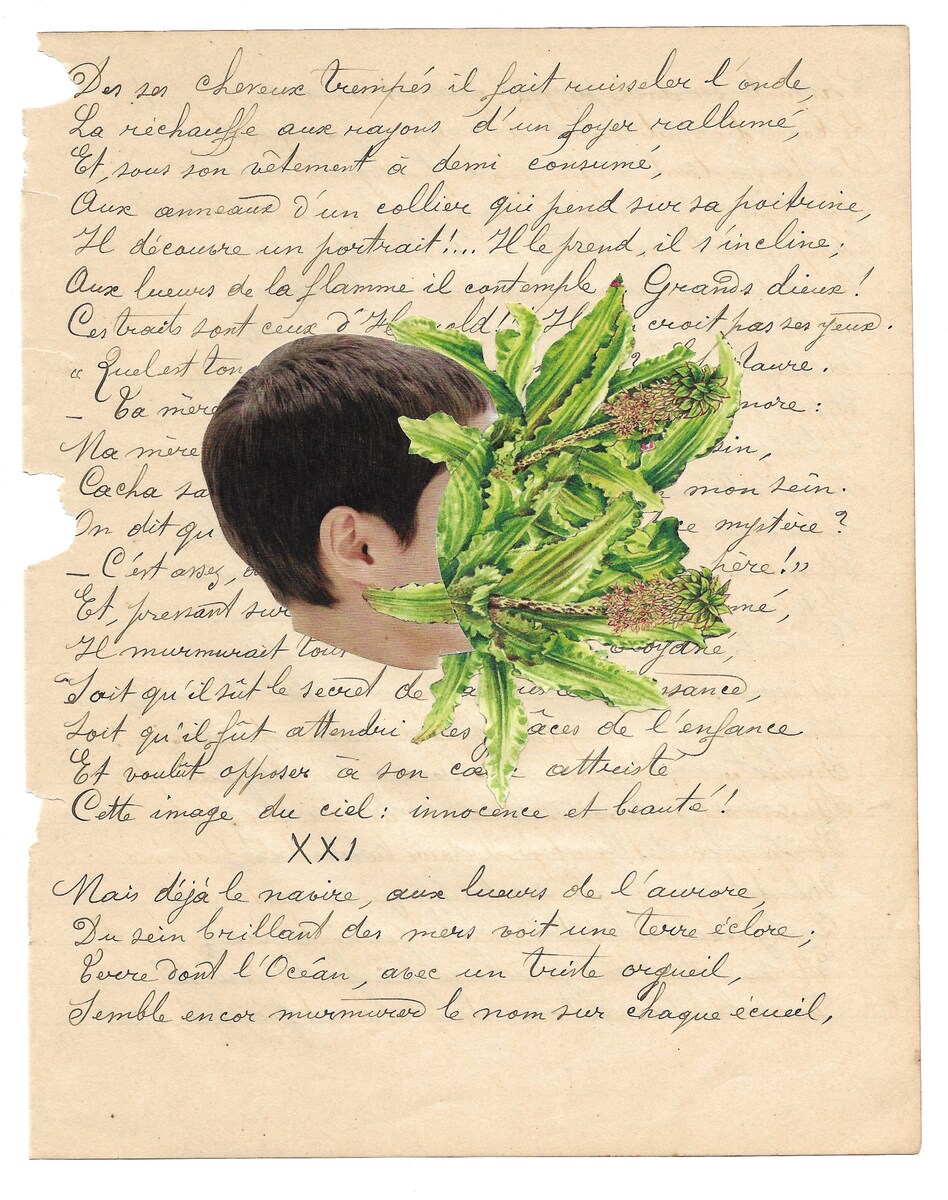 De ses cheveux trempés il fait ruisseler l'onde,
La réchauffe aux rayons d'un foyer rallumé,
Et, sous son vêtement à demi consumé,
Aux anneaux d'un collier qui pend sur sa poitrine,
Il découvre un portrait!... Il le prend, il s'incline;
Aux lueurs de la flamme il contemple Grands dieux!
Ces traits sont ceux d' croit pas ses yeux.
« Quel est ton
– Ta mère
Ma mère
Cacha sa mon sein.
On dit qu ce mystère?
– C'est assez,
Et, prenant sur
Il murmurait
Soit qu'il sût le secret de
Soit qu'il fût attendri de l'enfance
Et voulût opposer à son attristé
Cette image du ciel: innocence et beauté!
XXI
Mais déjà le navire, aux lueurs de l'aurore,
Du sein brillant des mers voit une terre éclore;
Terre dont l'Océan, avec un triste orgueil,
Semble encor murmurer le nom sur chaque écueil,